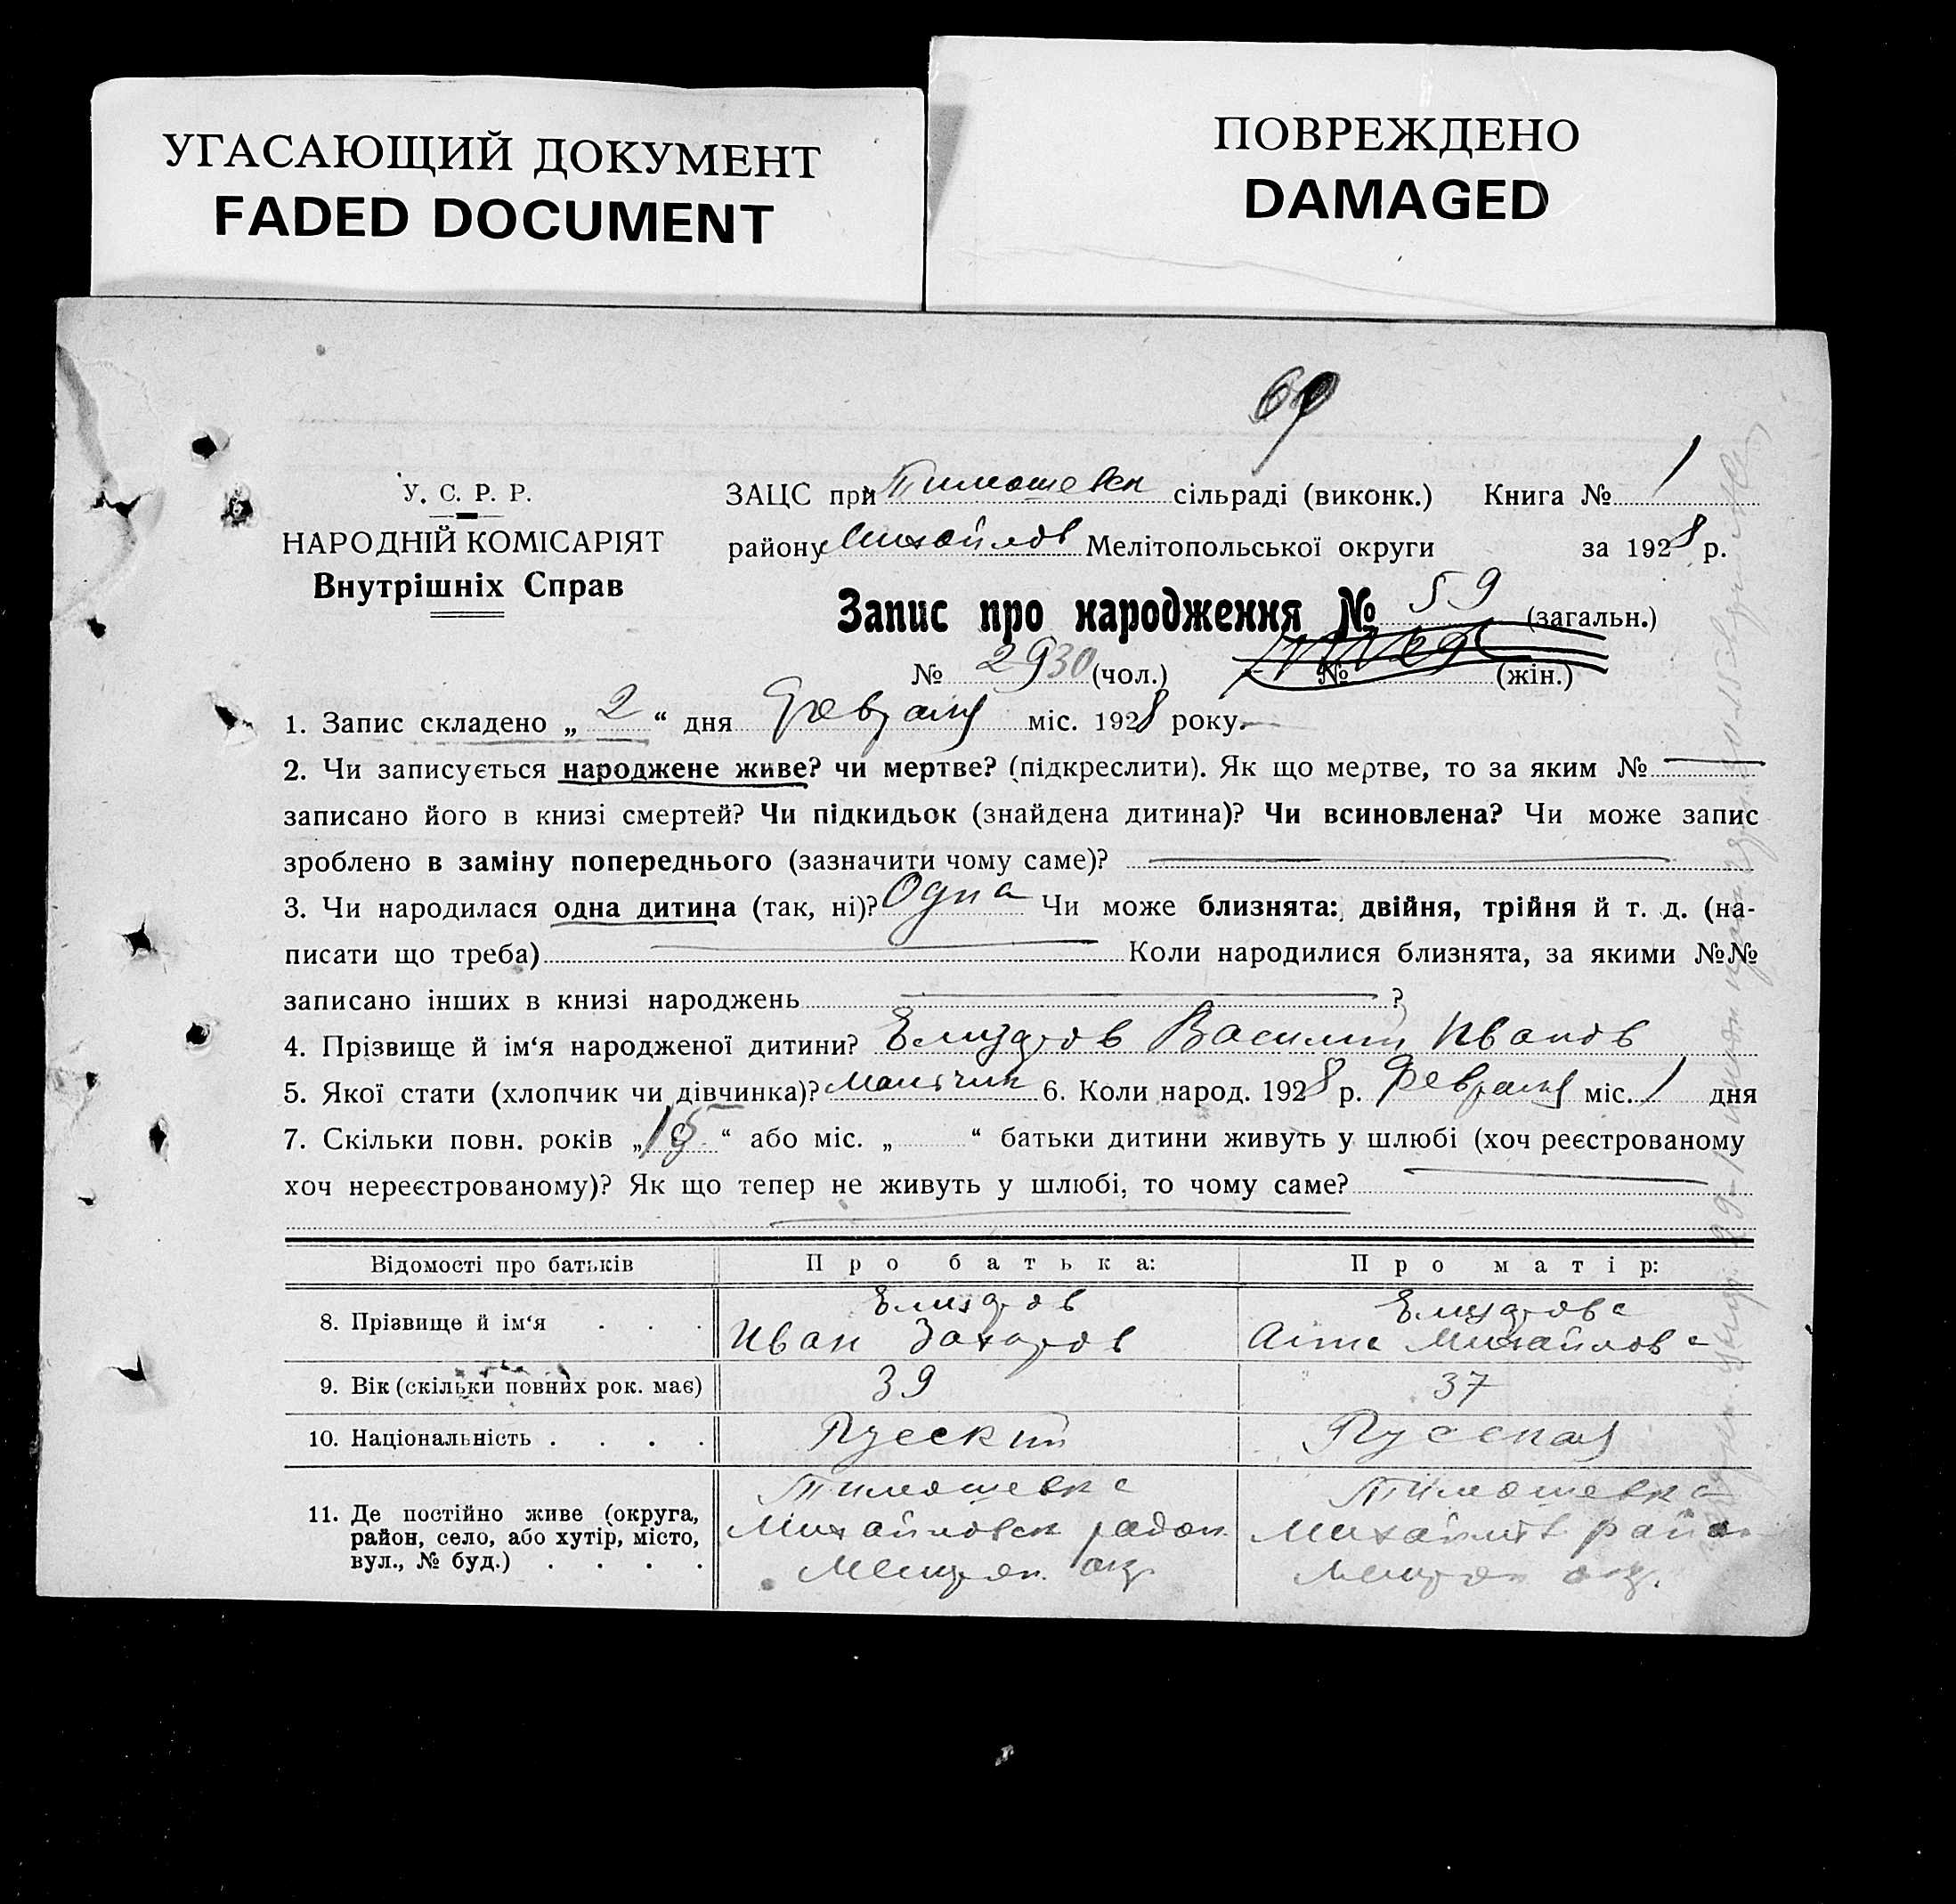 УГАСАЮЩИЙ ДОКУМЕНТ
FADED DOCUMENT
ПОВРЕЖДЕНО
DAMAGED
У. С. Р. Р.
НАРОДНІЙ КОМІСАРІЯТ
Внутрішніх Справ
ЗАЦС при Тимошевск сільраді (виконк.) Книга № 1
району Михайлов Мелітопольської округи за 1928 р.
Запис про народження № 59 (загальн.)
№ 29 30 (чол.) № (жін.)
1. Запис складено „ 2 “ дня Февраля міс. 1928 року.
2. Чи записується народжене живе? чи мертве? (підкреслити). Як що мертве, то за яким №
записано його в книзі смертей? Чи підкидьок (знайдена дитина)? Чи всиновлена? Чи може запис
зроблено в заміну попереднього (зазначити чому саме)?
3. Чи народилася одна дитина (так, ні)? Одна Чи може близнята: двійня, трійня й т. д. (на-
писати що треба) Коли народилися близнята, за якими №№
записано інших в книзі народжень ?
4. Прізвище й ім‘я народженої дитини? Василий Иванов
5. Якої стати (хлопчик чи дівчинка)? Мальчик 6. Коли народ. 1928 р. Февраля міс. 1 дня
7. Скільки повн. років „ 15 “ або міс. „ “ батьки дитини живуть у шлюбі (хоч реєстрованому
хоч нереєстрованому)? Як що тепер не живуть у шлюбі, то чому саме?
Відомості про батьків Про батька: Про матір:
8. Прізвище й ім‘я . . .
Иван Захаров
Михайлова
9. Вік (скільки повних рок. має) 39 37
10. Національність . . . . Руский Русская
11. Де постійно живе (округа,
район, село, або хутір, місто,
вул., № буд.) . . . .
Тимошевка
Михайловск район
Мелитоп. окр.
Тимошевка
Михайлов район
Мелитоп окр.